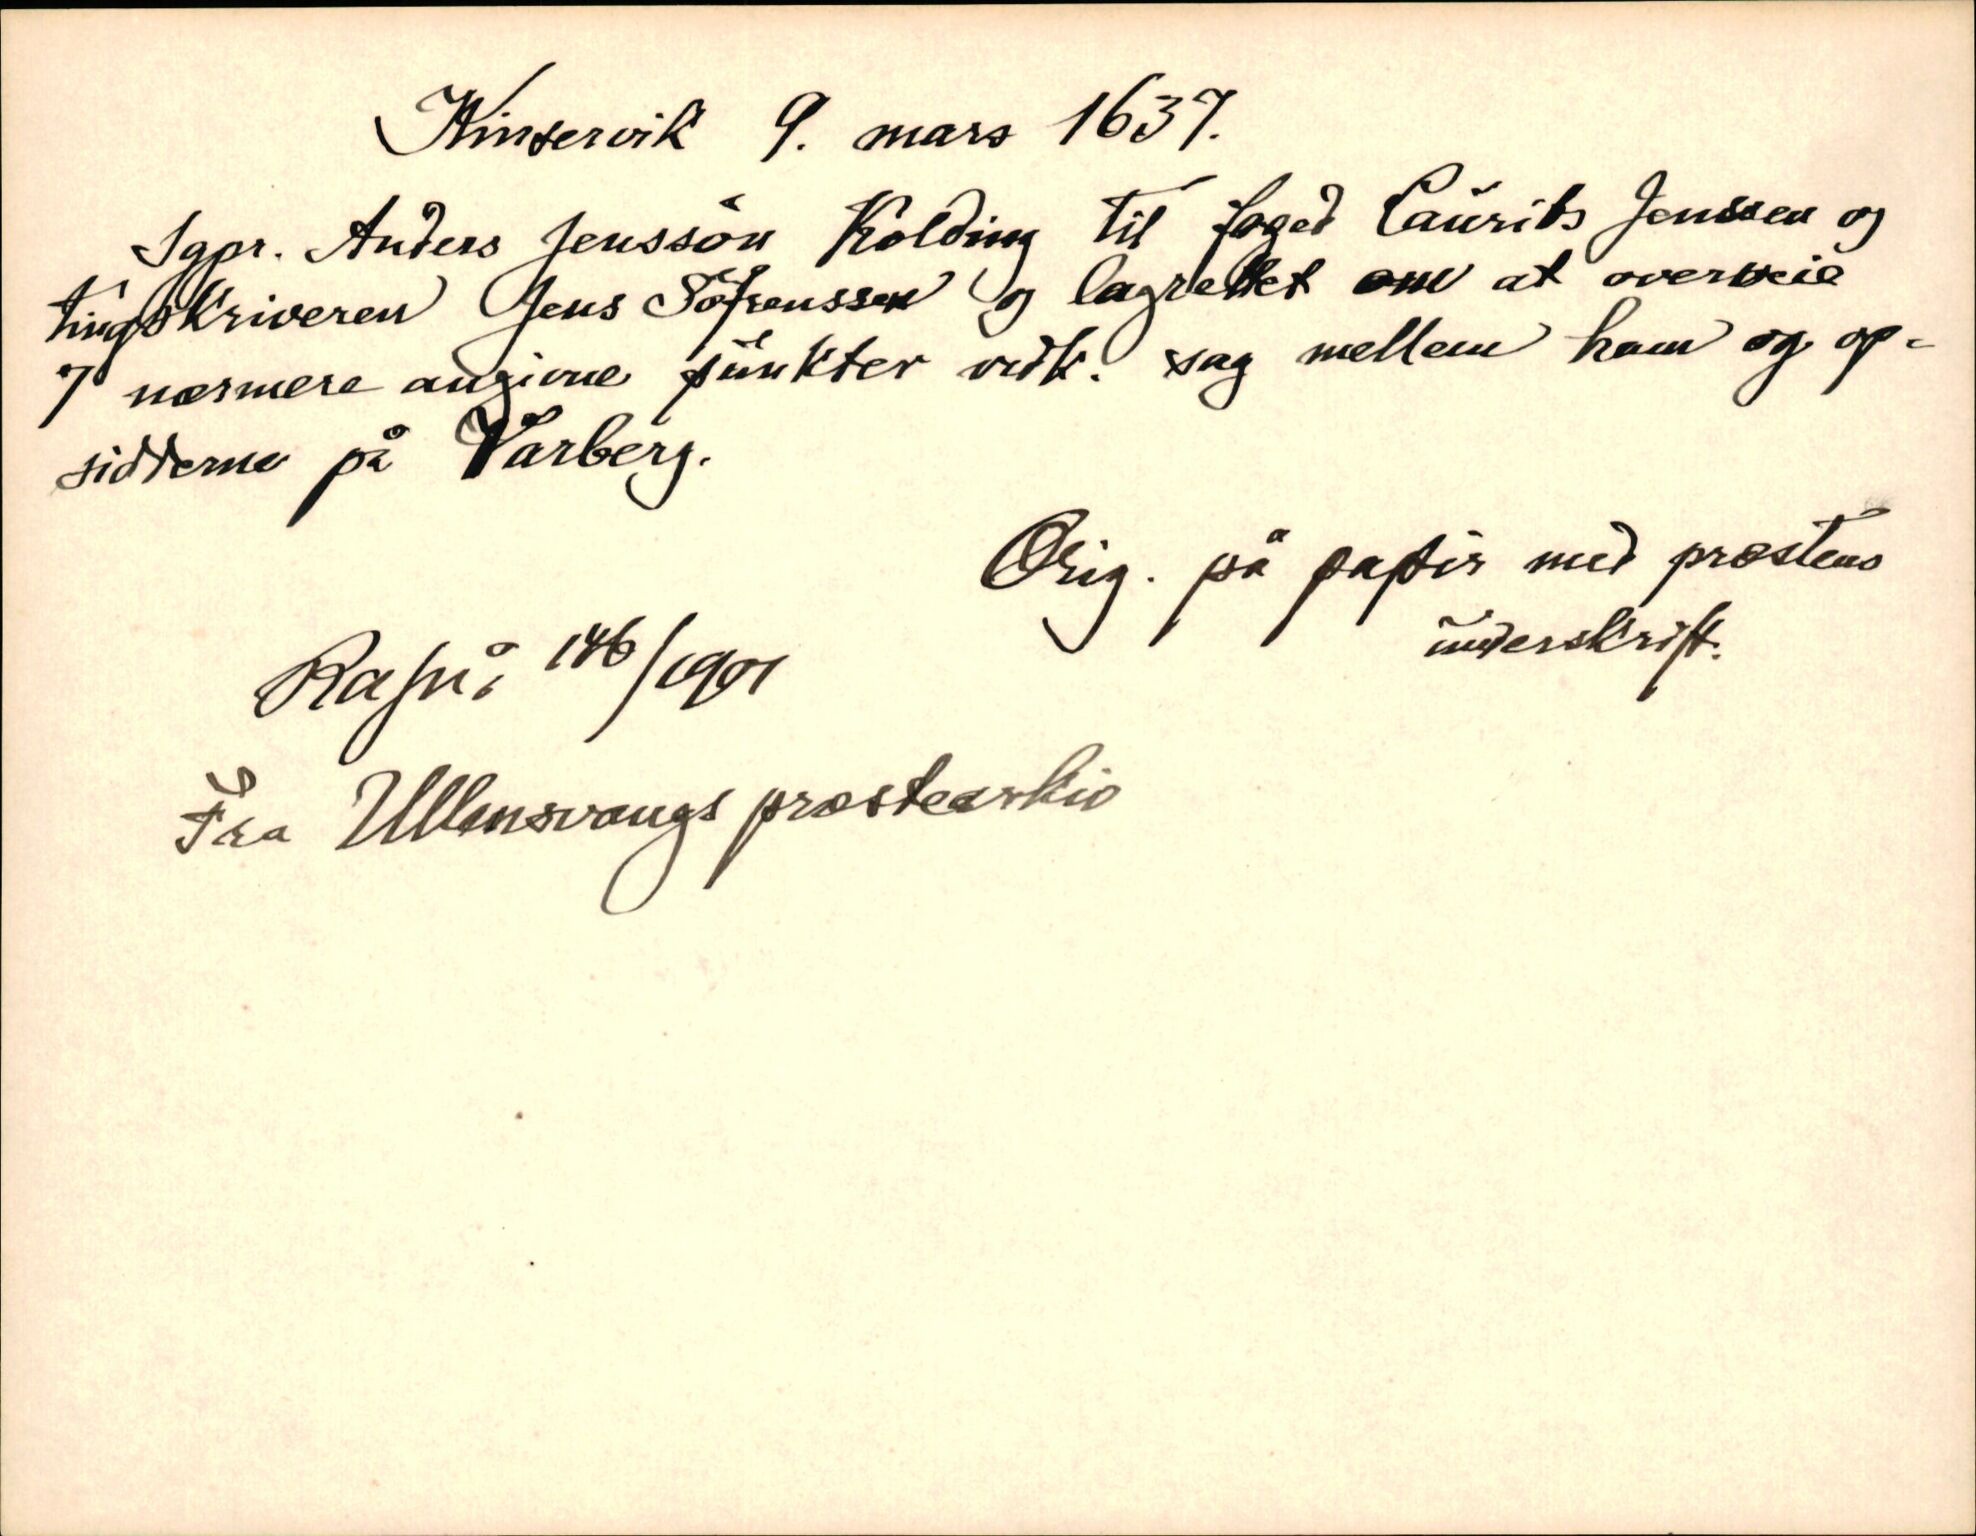 Kinservik 9. mars 1637.
Sgpr. Anders Jenssön Kolding til foged Laurits Jenssen og
tingskriveren Jens Söfrenssen og lagrettet om at overveie
7 nærmere angivne punkter vedk. sag mellem ham og op-
sidderne på Varberg.
Orig. på papir med præstens
underskrift.
146/1901
Fra Ullensvangs præstearkiv